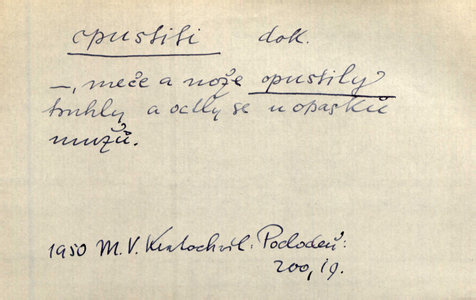 opustiti dok.
—, meče a nože opustily
truhly a octly se u opasků
mužů.
1950 M. V. Kratochvíl: Pochodeň:
200, 19.